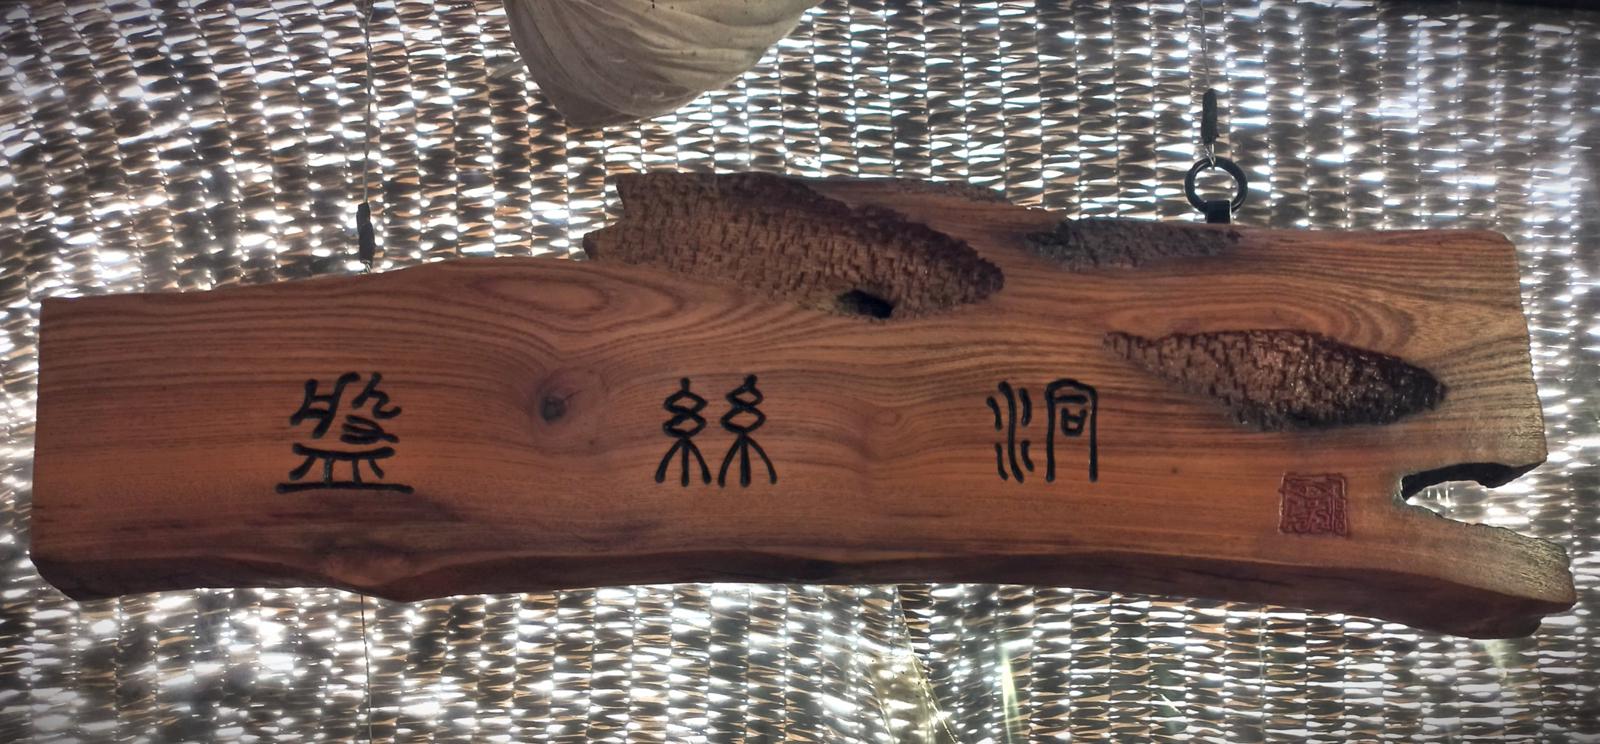 盤絲洞